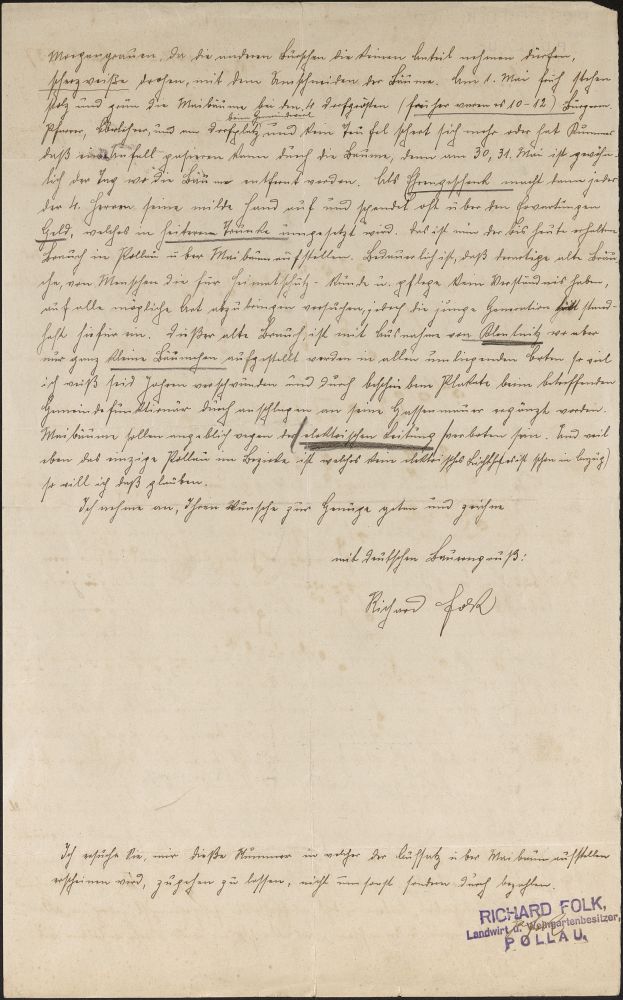 Morgengrauen, da die anderen Burschen die keinen Anteil nehmen dürfen,
scherzweiße drohen, mit dem Umschneiden der Bäume. Am 1. Mai früh stehen
stolz und grün die Maibäume bei den 4 Dorfgrößten (früher waren es 10-12) Bürgerm.
beim Gemeinderat
Pfarrer, Oberlehrer, und am Dorfplatz und kein Teufel schert sich mehr oder hat Kummer
daß ein Unfall pasieren kann durch die Bäume, denn am 30, 31. Mai ist gewöhn-
lich der Tag wo die Bäume entfernt werden. Als Ehrengeschenk macht dann jeder
der 4. Herren seine milde Hand auf und spendet oft über den Erwartungen
Geld, welches in heiterem Trunke umgesetzt wird. Das ist nun der bis heute erhaltene
Brauch in Pollau über Maibaumaufstellen. Bedauerlich ist, daß derartige alte Bräu-
che, von Menschen die für Heimatschutz- Kunde u. pflege kein Verständnis haben,
auf alle mögliche Art abzubringen versuchen, jedoch die junge Generation tritt stand-
haft hiefür ein. Dießer alte Brauch, ist mit Ausnahme von Klentnitz wo aber
nur ganz kleine Bäumchen aufgestellt werden in allen umliegenden Orten so viel
ich weiß seid Jahren verschwunden und durch beschriebene Plakate beim betreffenden
Gemeindefunktionär durch anschlagen an seine Gassenmauer ergänzt worden.
Maibäume sollen angeblich wegen der elektrischen Leitung verboten sein. Und weil
eben das einzige Pollau im Bezirke ist welches kein elektrisches Licht ist schon in bezug)
so will ich daß glauben.
Ich nehme an, Ihrem Wunsche zur Genüge getan und zeichne
mit deutschen Bauerngruß:
Richard Folk
Ich ersuche Sie, mir dieße Nummer in welcher der Aufsatz über Maibaumaufstellen
erscheinen wird, zugehen zu lassen, nicht umsonst sondern durch bezahlen.
RICHARD FOLK,
Landwirt u. Weingartenbesitzer,
POLLAU.